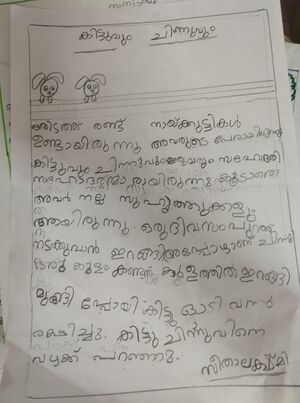 കിട്ടുവും ചിന്നുവും
ഒരിടത്ത് രണ്ട് നായ്ക്കുട്ടികൾ
ഉണ്ടായിരുന്നു അവരുടെ പേരായിരുന്നു
കിട്ടുവും ചിന്നുവും അവരും
സഹോദരന്മാരായിരുന്നു കൂടാതെ
അവർ നല്ല സുഹൃത്തുക്കളു
ആയിരുന്നു. ഒരു ദിവസം പുറത്ത്
നടക്കുവാൻ ഇറങ്ങിഅപ്പോയാണ് ചിന്നു
ഒരു കുളം കണ്ടത്. കുളത്തിൽ ഇറങ്ങി
മുങ്ങി പോയി കിട്ടു ഓടി വന്ന്
രക്ഷിച്ചു. കിട്ടു ചിന്നുവിനെ
വഴക്ക് പറഞ്ഞു.
സീതാലക്ഷ്മി